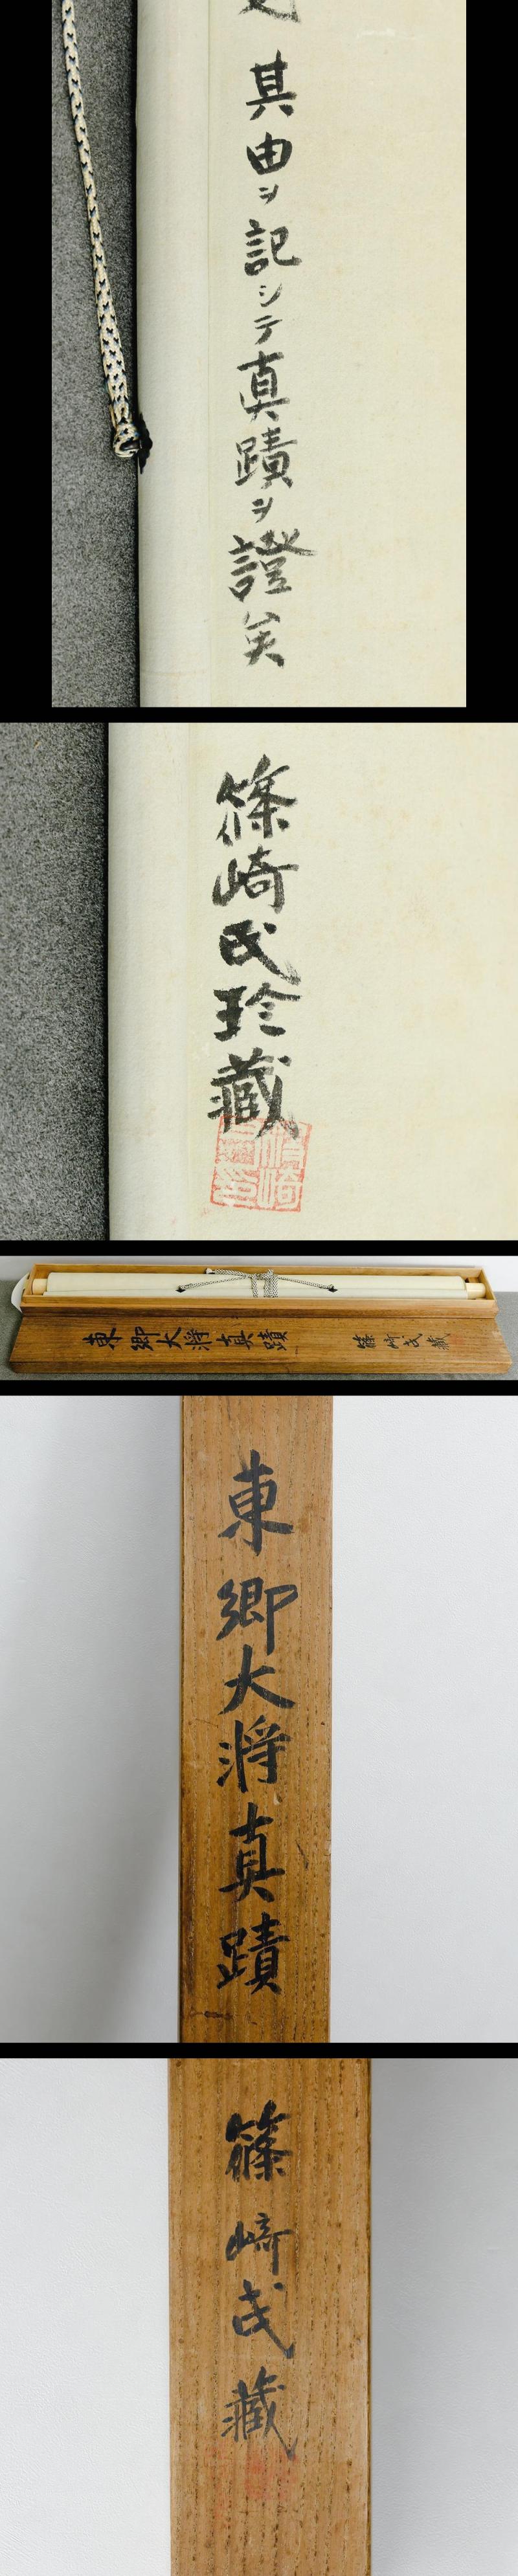 其由ヲ記シテ真蹟ヲ證矣
篠崎氏珍藏
東郷大将真蹟
篠崎氏藏
東郷大将真蹟
篠崎氏藏